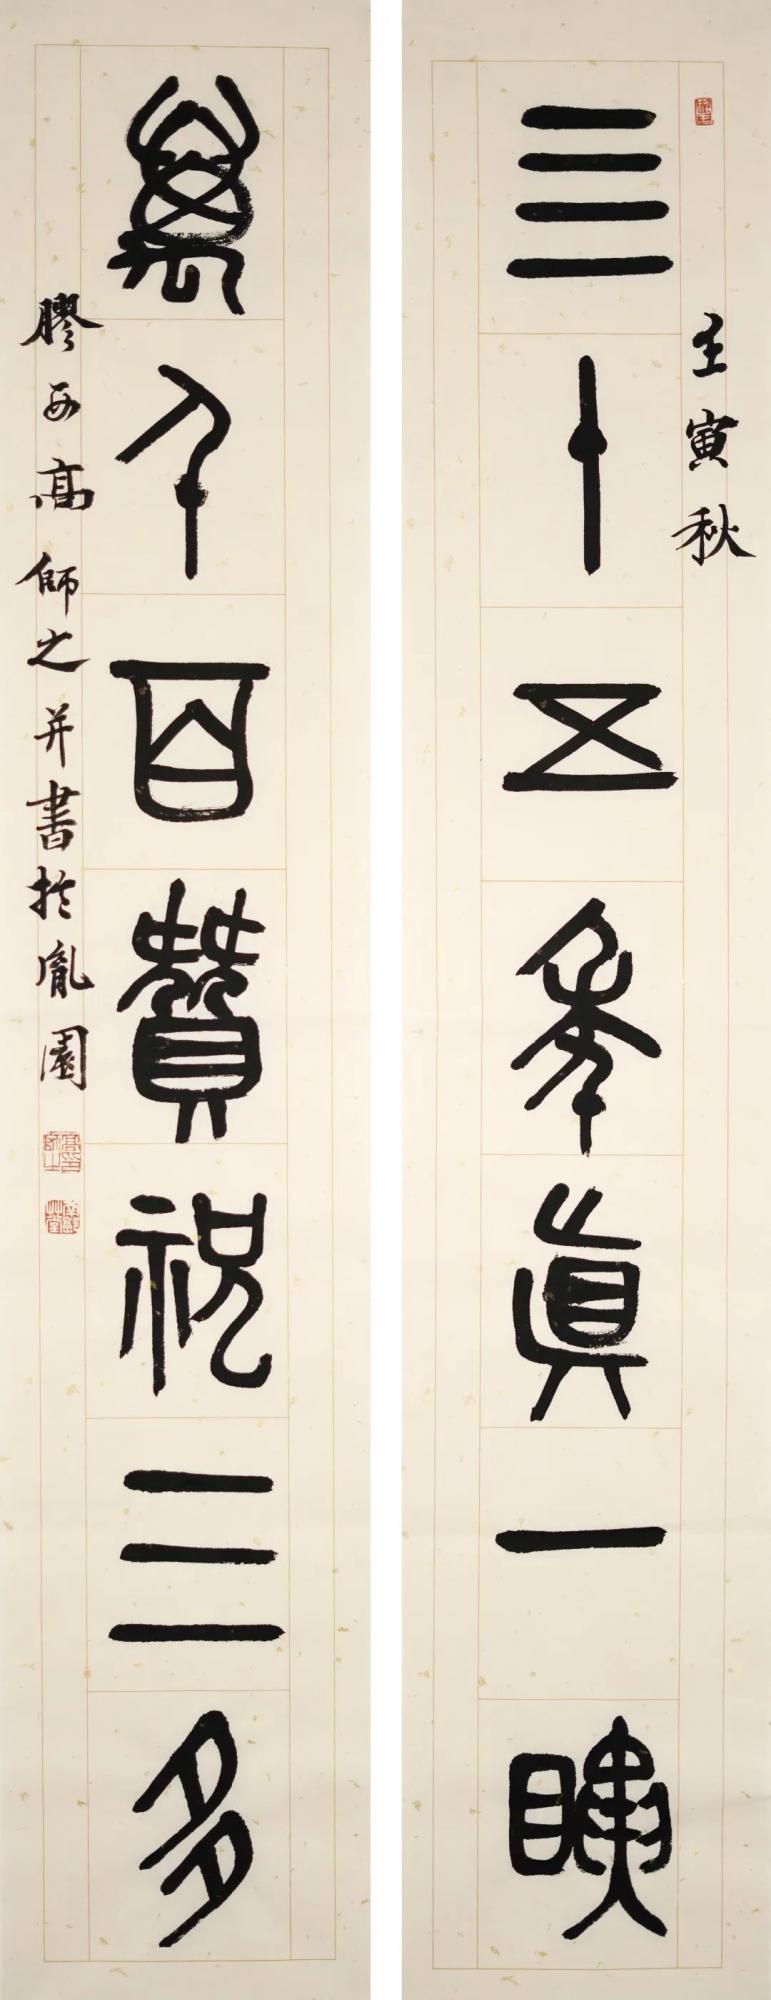 壬寅秋
亖十五年眞一瞚
萬千百贊祝三多
膠西高師之并書於胤園